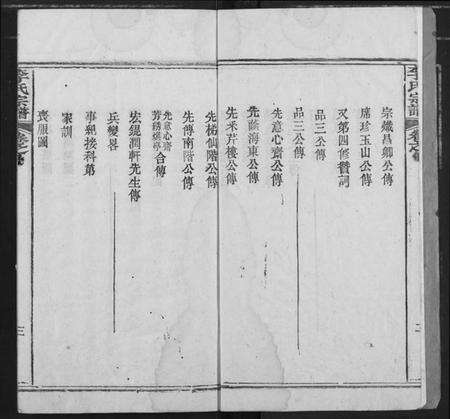 李氏宗譜
宗熾昌卿公傳
席珍玉山公傳
又第四修贊詞
品三公傳
品二公傳
先意心齋公傳
先蔭海東公傳
先釆芹樓公傳
先梯仙階公傳
先傳南階公傳
先意心齋
芳綉 亭合傳
宏緄潤軒先生傳
兵變畧
事甦接科弟
家訓
喪服圖
李氏宗譜
三